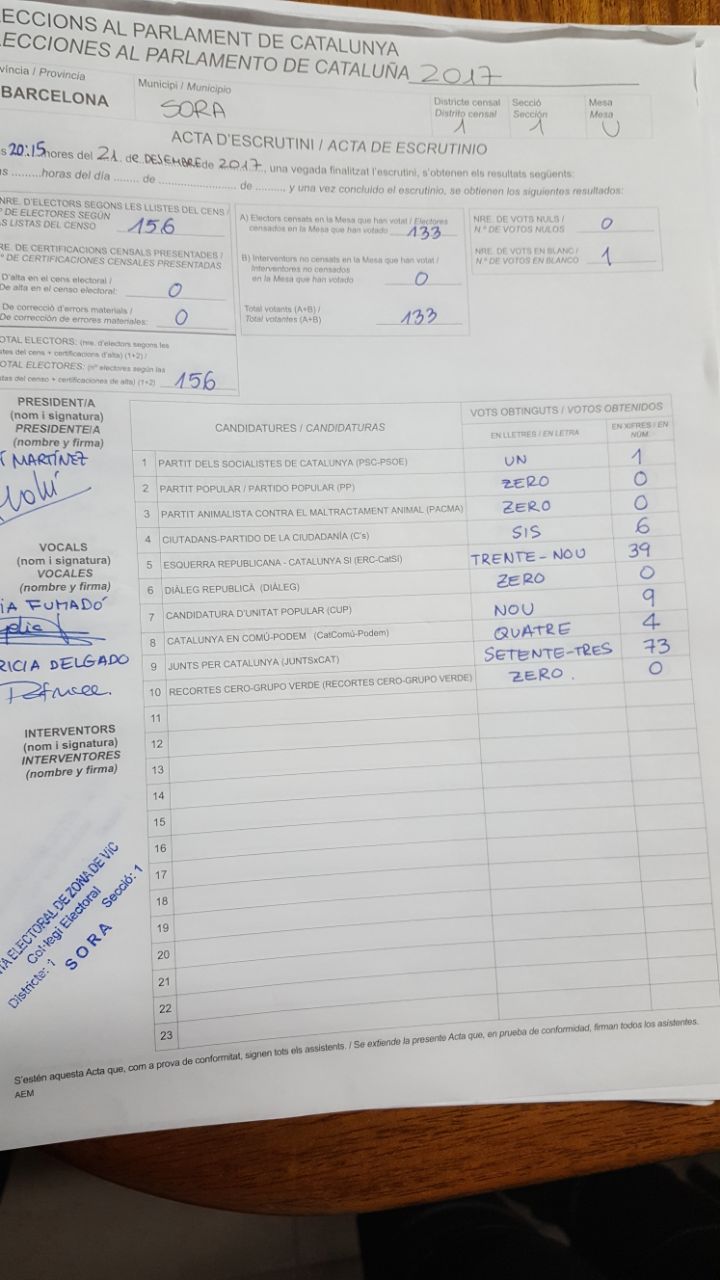 LECCIONS AL PARLAMENT DE CATALUNYA
LECCIONES AL PARLAMENTO DE CATALUÑA 2017
víncia / Provincia
BARCELONA
Municipi / Municipio
SORA
Districte censal
Distrito censal
1
Secció
Sección
1
Mesa
Mesa
U
ACTA D'ESCRUTINI / ACTA DE ESCRUTINIO
s 20:15 hores del 21 de DESEMBRE de 2017, una vegada finalitzat l'escrutini, s'obtenen els resultats següents:
as ........horas del día ........ de ........................ de ......... y una vez concluido el escrutinio, se obtienen los siguientes resultados:
NRE. D'ELECTORS SEGONS LES LLISTES DEL CENS /
º DE ELECTORES SEGÚN
AS LISTAS DEL CENSO 156
RE. DE CERTIFICACIONS CENSALS PRESENTADES /
º DE CERTIFICACIONES CENSALES PRESENTADAS
D'alta en el cens electoral /
De alta en el censo electoral: 0
De correcció d'errors materials /
De corrección de errores materiales: 0
OTAL ELECTORS: (nre. d'electors segons les
stes del cens + certificacions d'alta) (1+2) /
OTAL ELECTORES: (nº electores según las
tas del censo + certificaciones de alta) (1+2) 156
A) Electors censats en la Mesa que han votat / Electores
censados en la Mesa que han votado 133
B) Interventors no censats en la Mesa que han votat /
Interventores no censados
en la Mesa que han votado 0
Total votants (A+B) /
Total votantes (A+B) 133
NRE. DE VOTS NULS /
N.º DE VOTOS NULOS 0
NRE. DE VOTS EN BLANC /
N.º DE VOTOS EN BLANCO 1
PRESIDENT/A
(nom i signatura)
PRESIDENTE/A
(nombre y firma)
MARTÍNEZ
VOCALS
(nom i signatura)
VOCALES
(nombre y firma)
IA FUMADÓ
RICIA DELGADO
INTERVENTORS
(nom i signatura)
INTERVENTORES
(nombre y firma)
TA ELECTORAL DE ZONA DE VIC
Col·legi Electoral
Districte: 1 Secció: 1
SORA
CANDIDATURES / CANDIDATURAS
VOTS OBTINGUTS / VOTOS OBTENIDOS
EN LLETRES / EN LETRA
EN XIFRES / EN
NÚM.
1 PARTIT DELS SOCIALISTES DE CATALUNYA (PSC-PSOE) UN 1
2 PARTIT POPULAR / PARTIDO POPULAR (PP) ZERO 0
3 PARTIT ANIMALISTA CONTRA EL MALTRACTAMENT ANIMAL (PACMA) ZERO 0
4 CIUTADANS-PARTIDO DE LA CIUDADANÍA (C's) SIS 6
5 ESQUERRA REPUBLICANA - CATALUNYA SI (ERC-CatSí) TRENTE-NOU 39
6 DIÀLEG REPUBLICÀ (DIÀLEG) ZERO 0
7 CANDIDATURA D'UNITAT POPULAR (CUP) NOU 9
8 CATALUNYA EN COMÚ-PODEM (CatComú-Podem) QUATRE 4
9 JUNTS PER CATALUNYA (JUNTSxCAT) SETENTE-TRES 73
10 RECORTES CERO-GRUPO VERDE (RECORTES CERO-GRUPO VERDE) ZERO. 0
11
12
13
14
15
16
17
18
19
20
21
22
23
S'estén aquesta Acta que, com a prova de conformitat, signen tots els assistents. / Se extiende la presente Acta que, en prueba de conformidad, firman todos los asistentes.
AEM